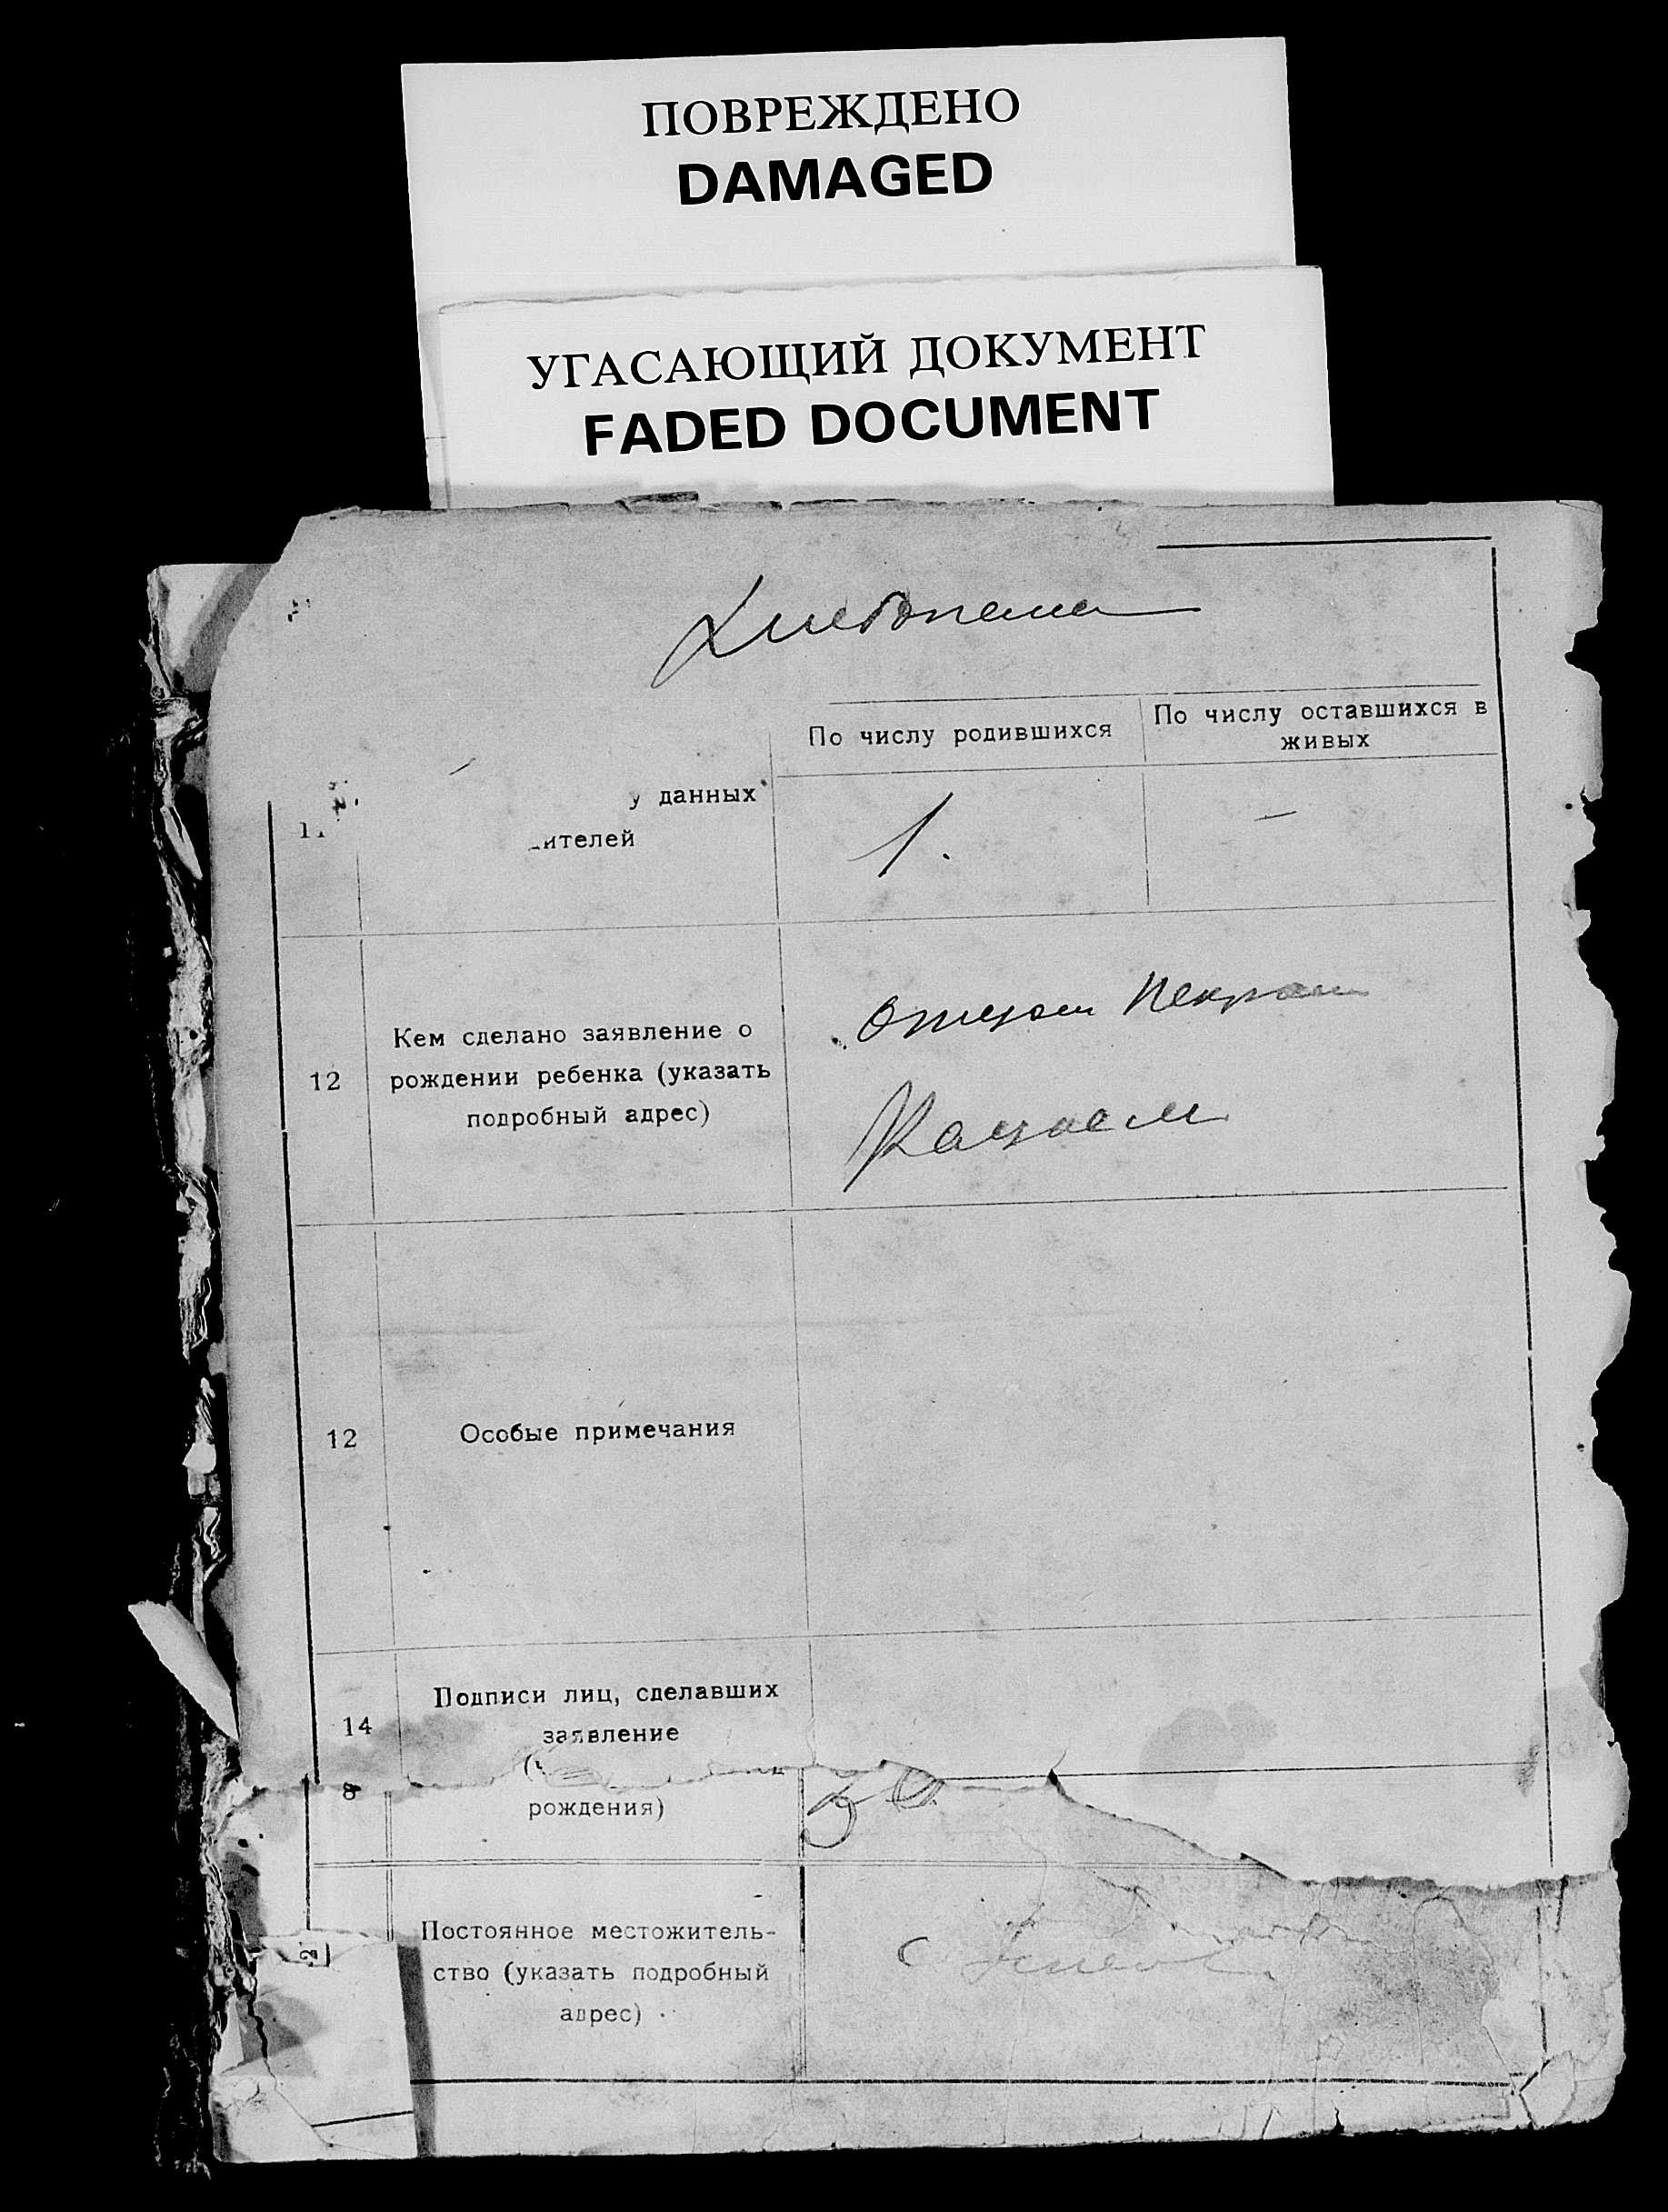 ПОВРЕЖДЕНО
DAMAGED
УГАСАЮЩИЙ ДОКУМЕНТ
FADED DOCUMENT
По числу родившихся
По числу оставшихся в
живых
у данных
ителей
1.
—
12
Кем сделано заявление о
рождении ребенка (указать
подробный адрес)
Отцом
12
Особые примечания
14
Подписи лиц, сделавших
заявление
8
рождения)
Постоянное местожитель-
ство (указать подробный
адрес)
с